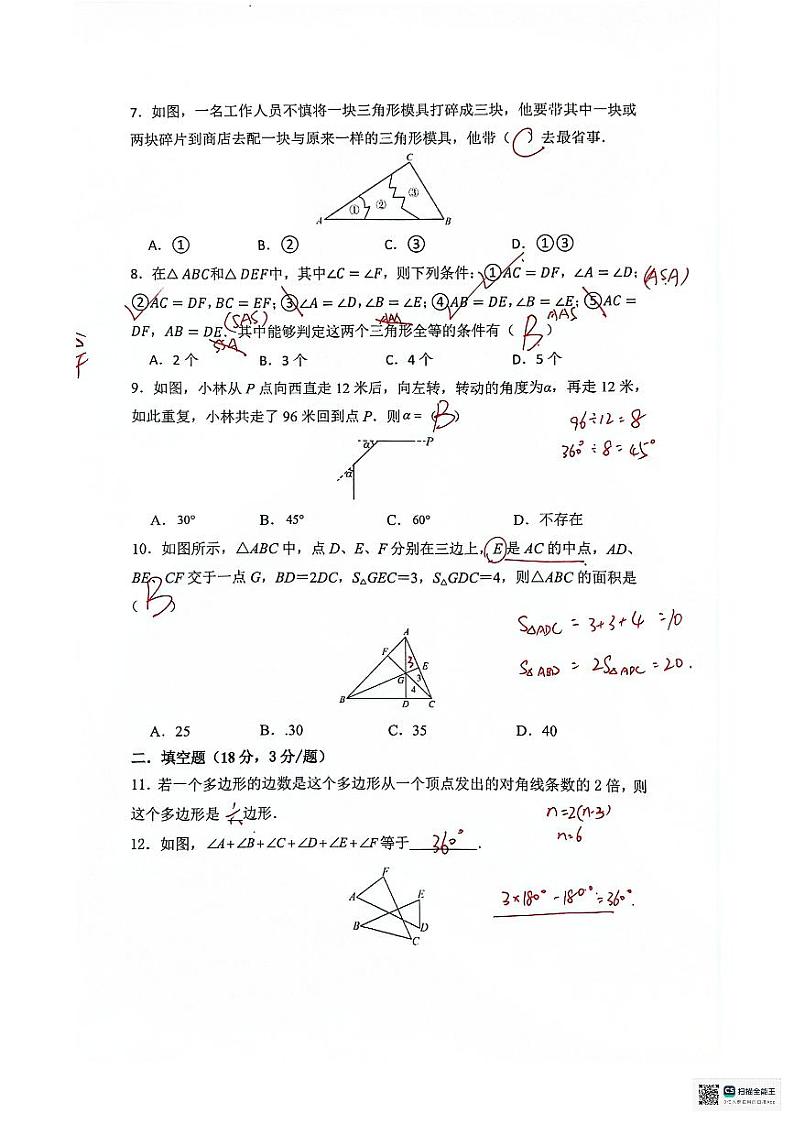 7. 如图，一名工作人员不慎将一块三角形模具打碎成三块，他要带其中一块或
两块碎片到商店去配一块与原来一样的三角形模具，他带（ C ）去最省事.
C
① ② ③
A B
A. ① B. ② C. ③ D. ①③
8. 在△ ABC和△ DEF中，其中∠C = ∠F，则下列条件：①AC = DF，∠A = ∠D；(ASA)
②AC = DF, BC = EF；③∠A = ∠D, ∠B = ∠E；④AB = DE, ∠B = ∠E；⑤AC =
(SAS) AAA AAS
DF，AB = DE. 其中能够判定这两个三角形全等的条件有（ B ）
SSA
A. 2 个 B. 3 个 C. 4 个 D. 5 个
9. 如图，小林从 P 点向西直走 12 米后，向左转，转动的角度为α，再走 12 米，
如此重复，小林共走了 96 米回到点 P. 则 α =（B）
96÷12=8
360°÷8=45°
α P
α
A. 30° B. 45° C. 60° D. 不存在
10. 如图所示，△ABC 中，点 D、E、F 分别在三边上，E 是 AC 的中点，AD、
BE、CF 交于一点 G，BD＝2DC，S△GEC＝3，S△GDC＝4，则△ABC 的面积是
（ B ）
S△ADC = 3+3+4 =10
S△ABD = 2S△ADC =20.
A
F 3 E
G 3
4
B D C
A. 25 B. .30 C. 35 D. 40
二. 填空题（18 分，3 分/题）
11. 若一个多边形的边数是这个多边形从一个顶点发出的对角线条数的 2 倍，则
这个多边形是 六 边形.
n=2(n-3)
n=6
12. 如图，∠A+∠B+∠C+∠D+∠E+∠F等于 360° .
F
A E
B D
C
3×180°-180°=360°.
CS 扫描全能王